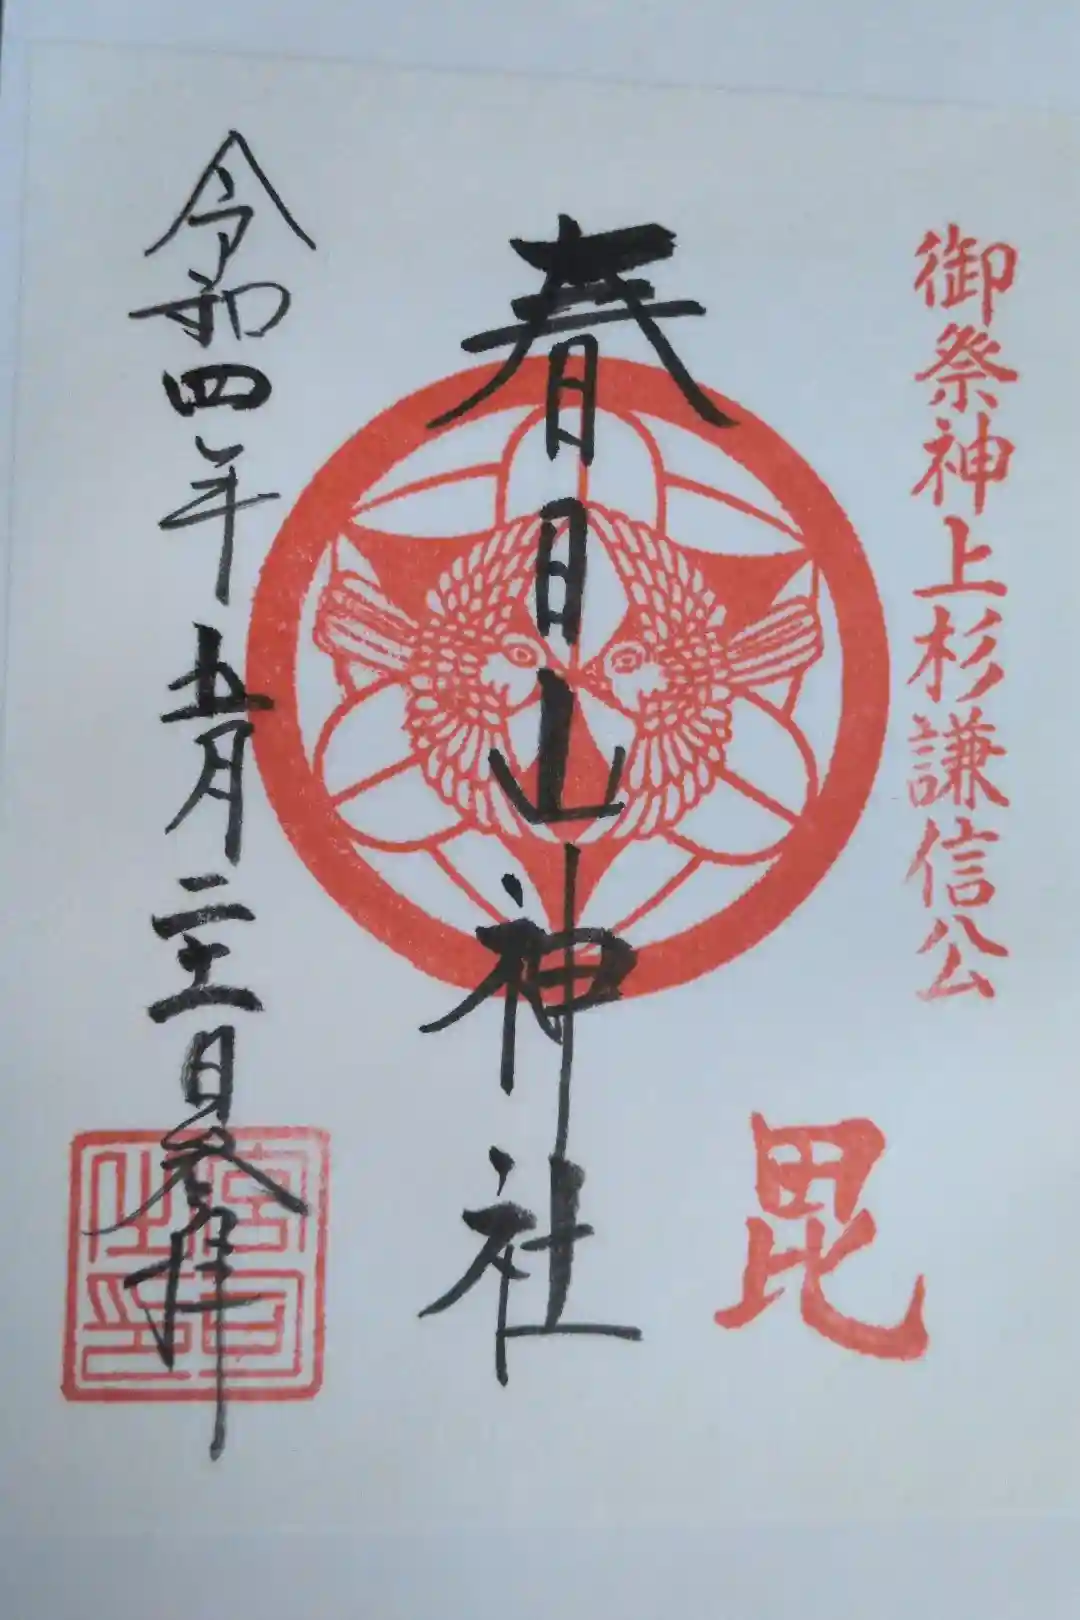 御祭神上杉謙信公
毘
春日山神社
令和四年五月二十一日参拝
宮司之印